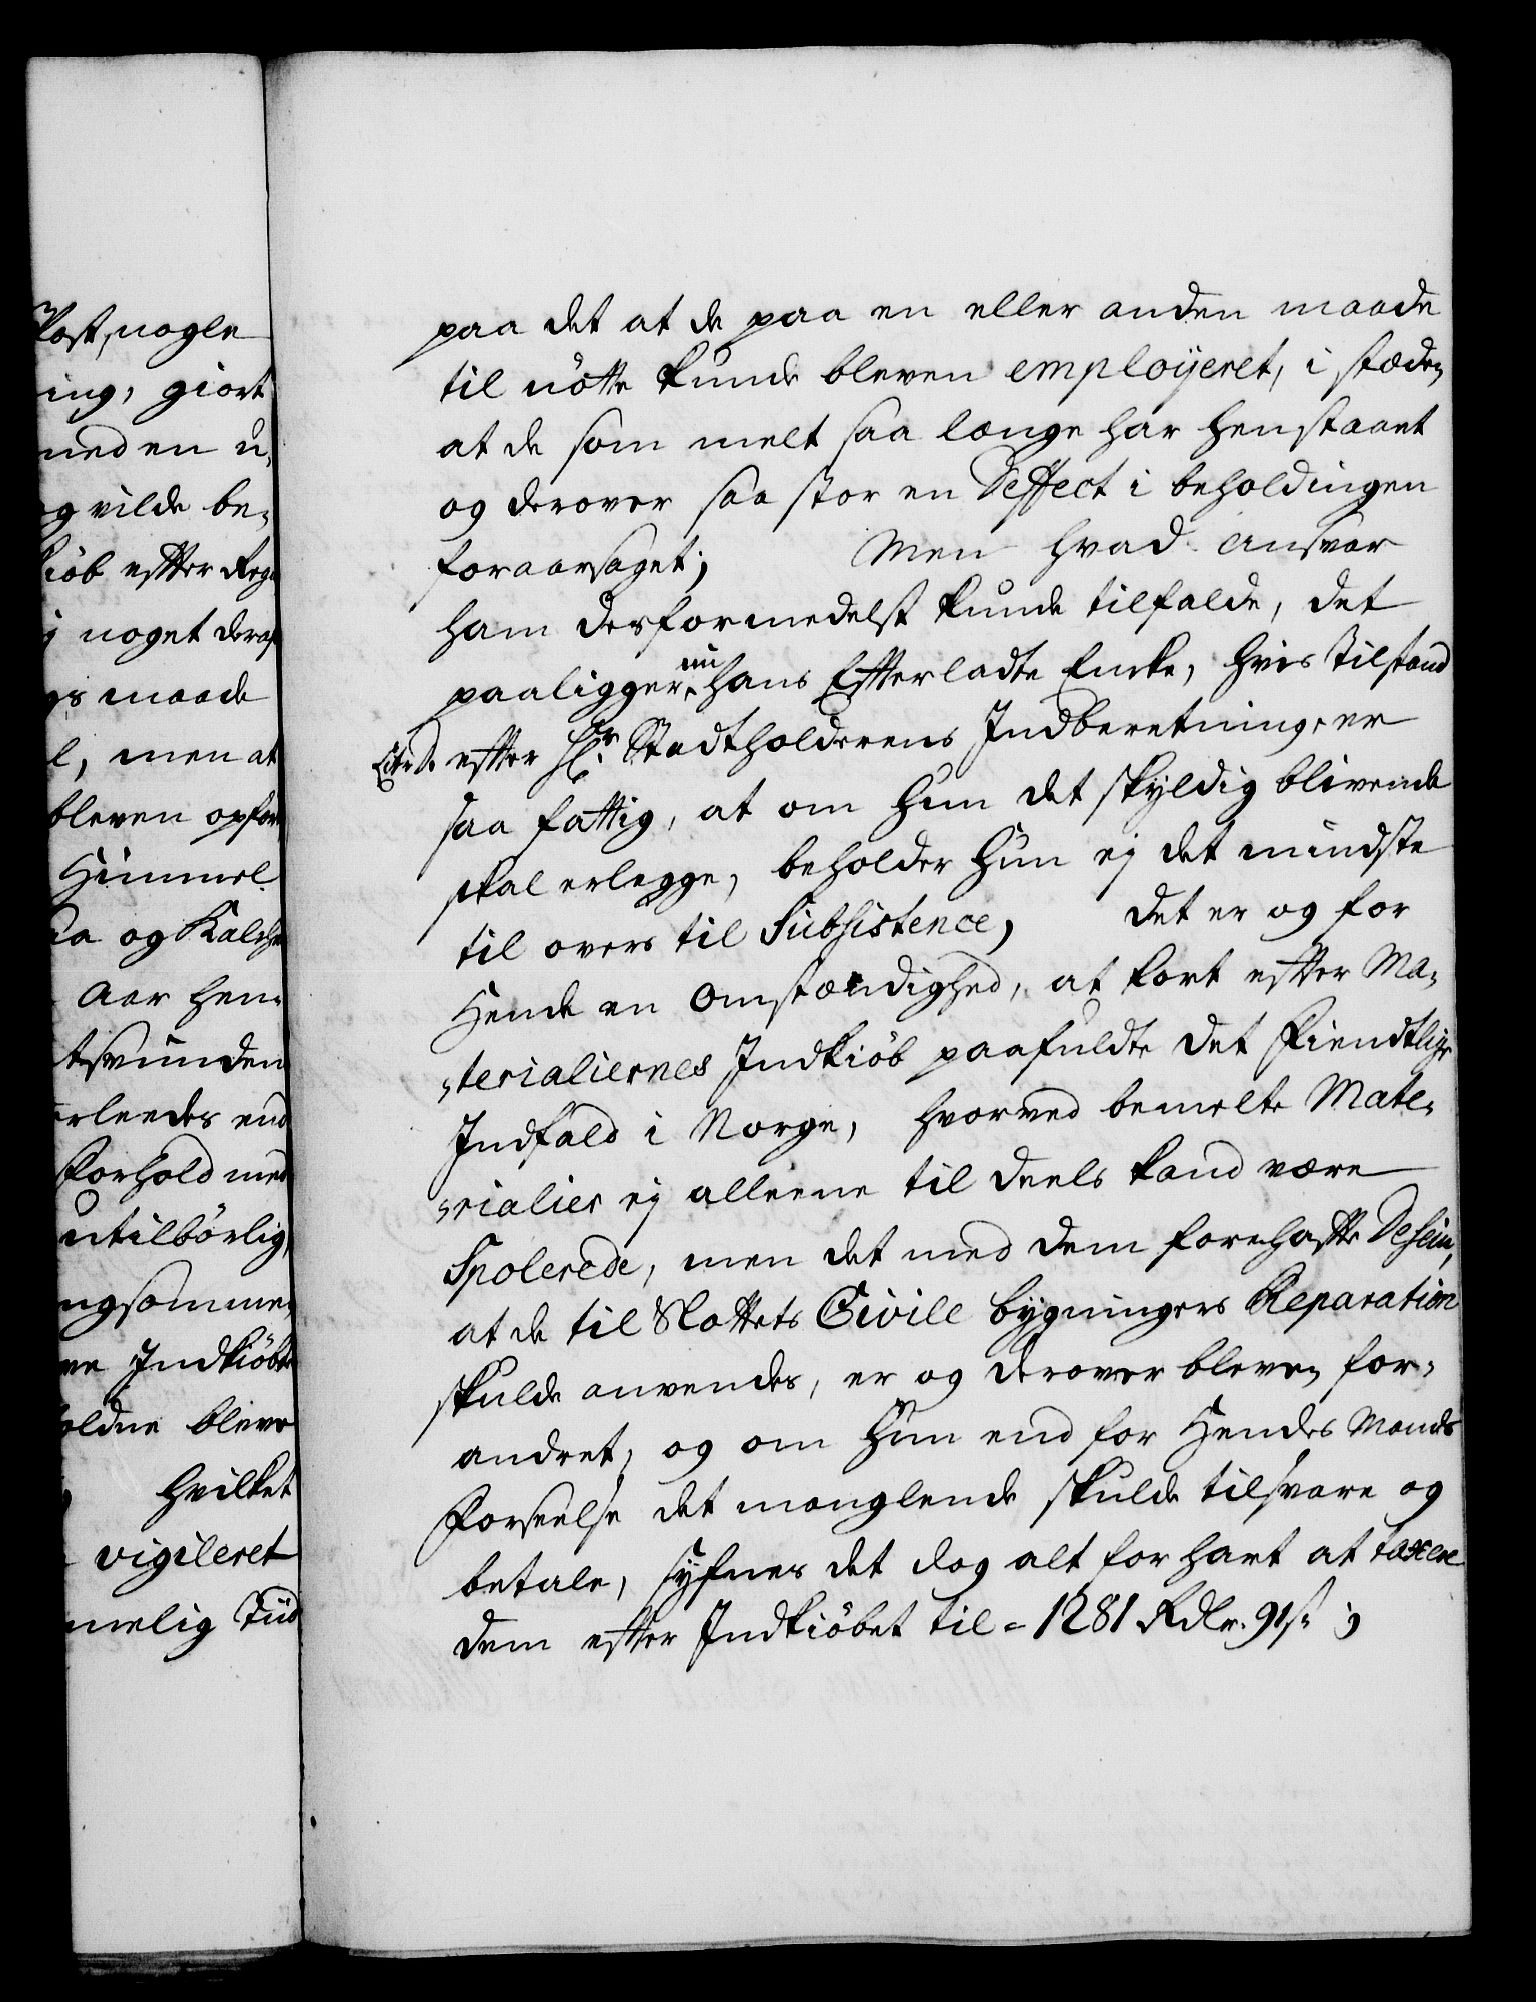 Post, nogle
ing, giort
med en u,
og vilde be,
kiöb effter Reg
j noget deraf
gs maade
l, men at
bleven opfør
Himmel
aa og Kalcks
Aar hen,
tsvunden
erleedes end
Forhold med
utilbörlig,
ngsomme,
ve Indkiöbte
oldne bleve
hvilket
vigileret
melig Tiid
paa det at de paa en eller anden maade
til nötte kunde bleven employeret, i stæden
at de som melt saa længe har henstaaet
og derover saa stor en Deffect i beholdingen
foraarsaget; Men hvad ansvar
ham desformedelst kunde tilfalde, det
paaligger nu hans Efterladte Encke, hvis Tilstand
Litr. D. effter Hr. Stadtholderens Indberetning er
saa fattig, at om hun det skyldig blivende
skal erlegge, beholder hun ej det mindste
til overs til Subsistence, det er og for
Hende en omstændighed, at kort effter Ma,
,terialiernes Indkiöb paafuldte det Fiendtlige
Indfald i Norge, hvorved bemelte Mate,
,rialier ej alleene til deels kand være
Spolerede, men det med dem forehaffte Desein,
at de til Slottets Civile bygningers Reparation
skulde anvendes, er og derover bleven for,
andret, og om hun end for Hendes Mands
Forseelse det manglende skulde tilsvare og
betale, syfnes det dog alt for hart at taxere
dem effter Indkiöbet til = 1281 Rdlr. 91 s;